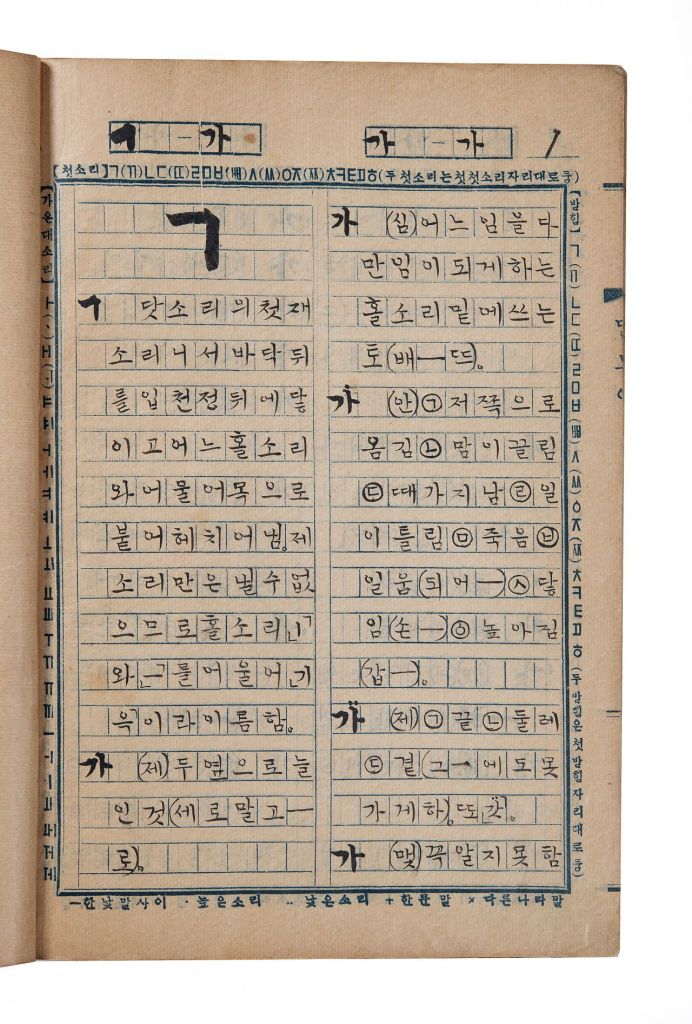 ㄱ — 가
가 — 가
1
【첫소리】ㄱ(ㄲ)ㄴㄷ(ㄸ)ㄹㅁㅂ(ㅃ)ㅅ(ㅆ)ㅇㅈ(ㅉ)ㅊㅋㅌㅍㅎ(두첫소리는첫첫소리자리대로둠)
【가온대소리】
ㄱ
ㄱ 닷소리의첫재
소리니서바닥뒤
를입천정뒤에닿
이고어느홀소리
와어물어목으로
불어헤치어냄。제
소리만은낼수없
으므로홀소리「ㅣ」
와「ㅡ」를어울어「기
윽」이라이름함。
가 (제)두옆으로늘
인것(세로말고—
로)。
가 (심)어느임을다
만임이되게하는
홀소리밑에쓰는
토(배—뜨)。
가 (안)㉠저쪽으로
옴김㉡맘이끌림
㉢때가지남㉣일
이틀림㉤죽음㉥
일움(되어—)㉦닿
임(손—)㉧높아짐
(갑—)。
가 (제)㉠끝㉡둘레
㉢곁(그—에도못
가게하)。또「갓」。
가 (맺)꼭알지못함
【받힘】ㄱ(ㄲ)ㄴㄷ(ㄸ)ㄹㅁㅂ(ㅃ)ㅅ(ㅆ)ㅇㅈ(ㅉ)ㅊㅋㅌㅍㅎ(두받힘은첫받힘자리대로둠)
—한낱말사이 ·높은소리 ··낮은소리 +한문말 ×다른나라말